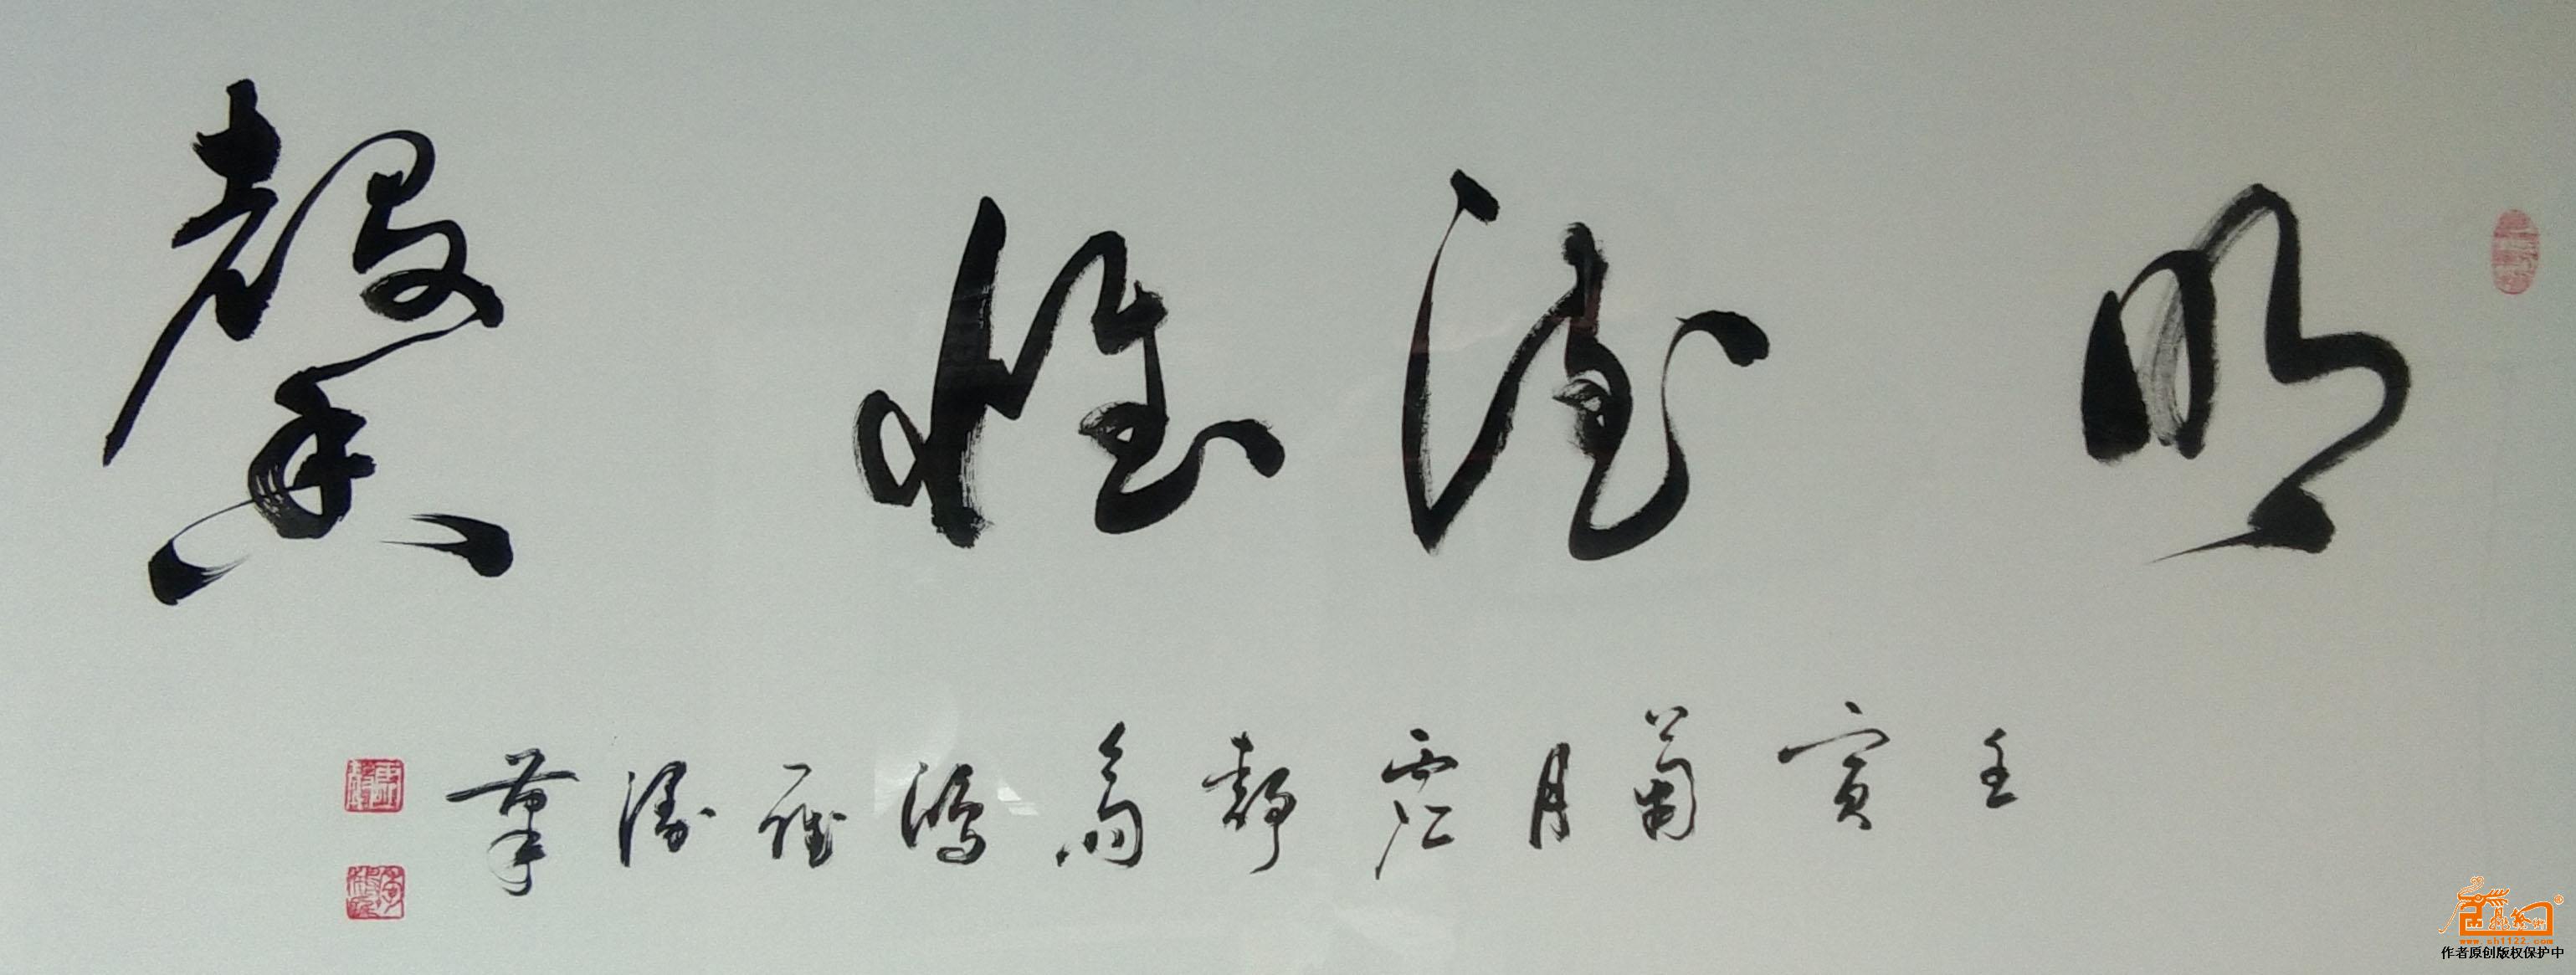 明德惟馨
壬寅蘭月虛靜斋鸿雁涛筆
www.sh1122.com
作者原创版权保护中